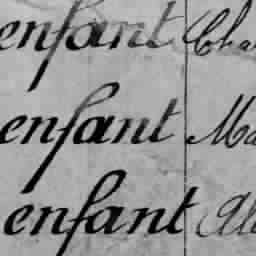 enfant Cha
enfant Ma
enfant Al